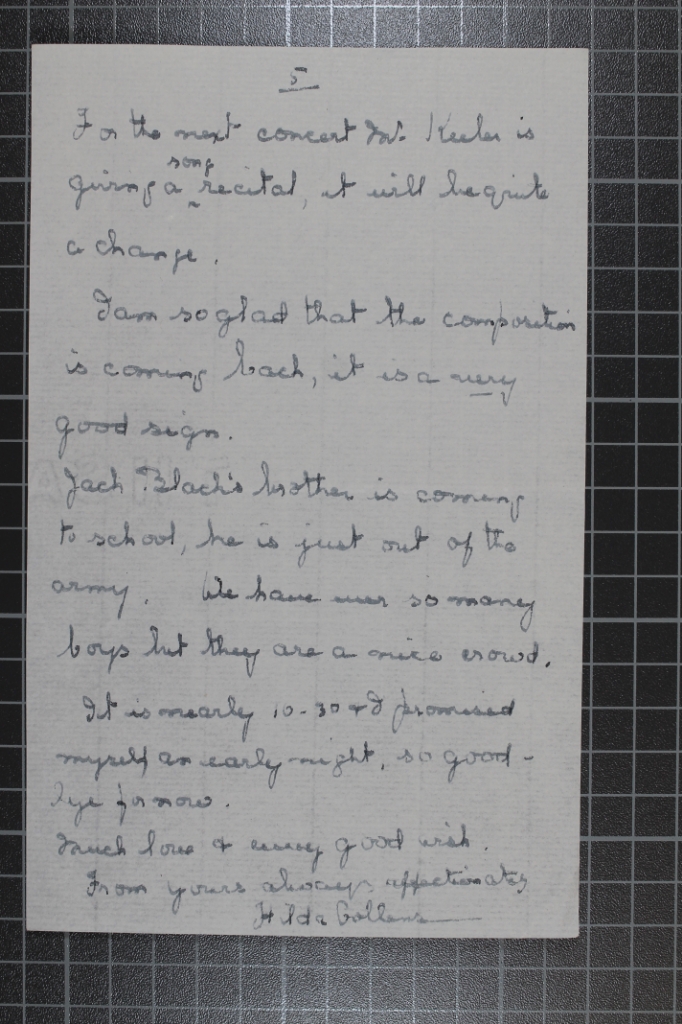 5
For the next concert Mr. Keeler is
giving a song recital, it will be quite
a change.
I am so glad that the composition
is coming back, it is a very
good sign.
Jack Black's brother is coming
to school, he is just out of the
army. We have ever so many
boys but they are a nice crowd.
It is nearly 10-30 & I promised
myself an early night, so good-
bye for now.
Much love & every good wish.
From yours always affectionately
Hilda Collens